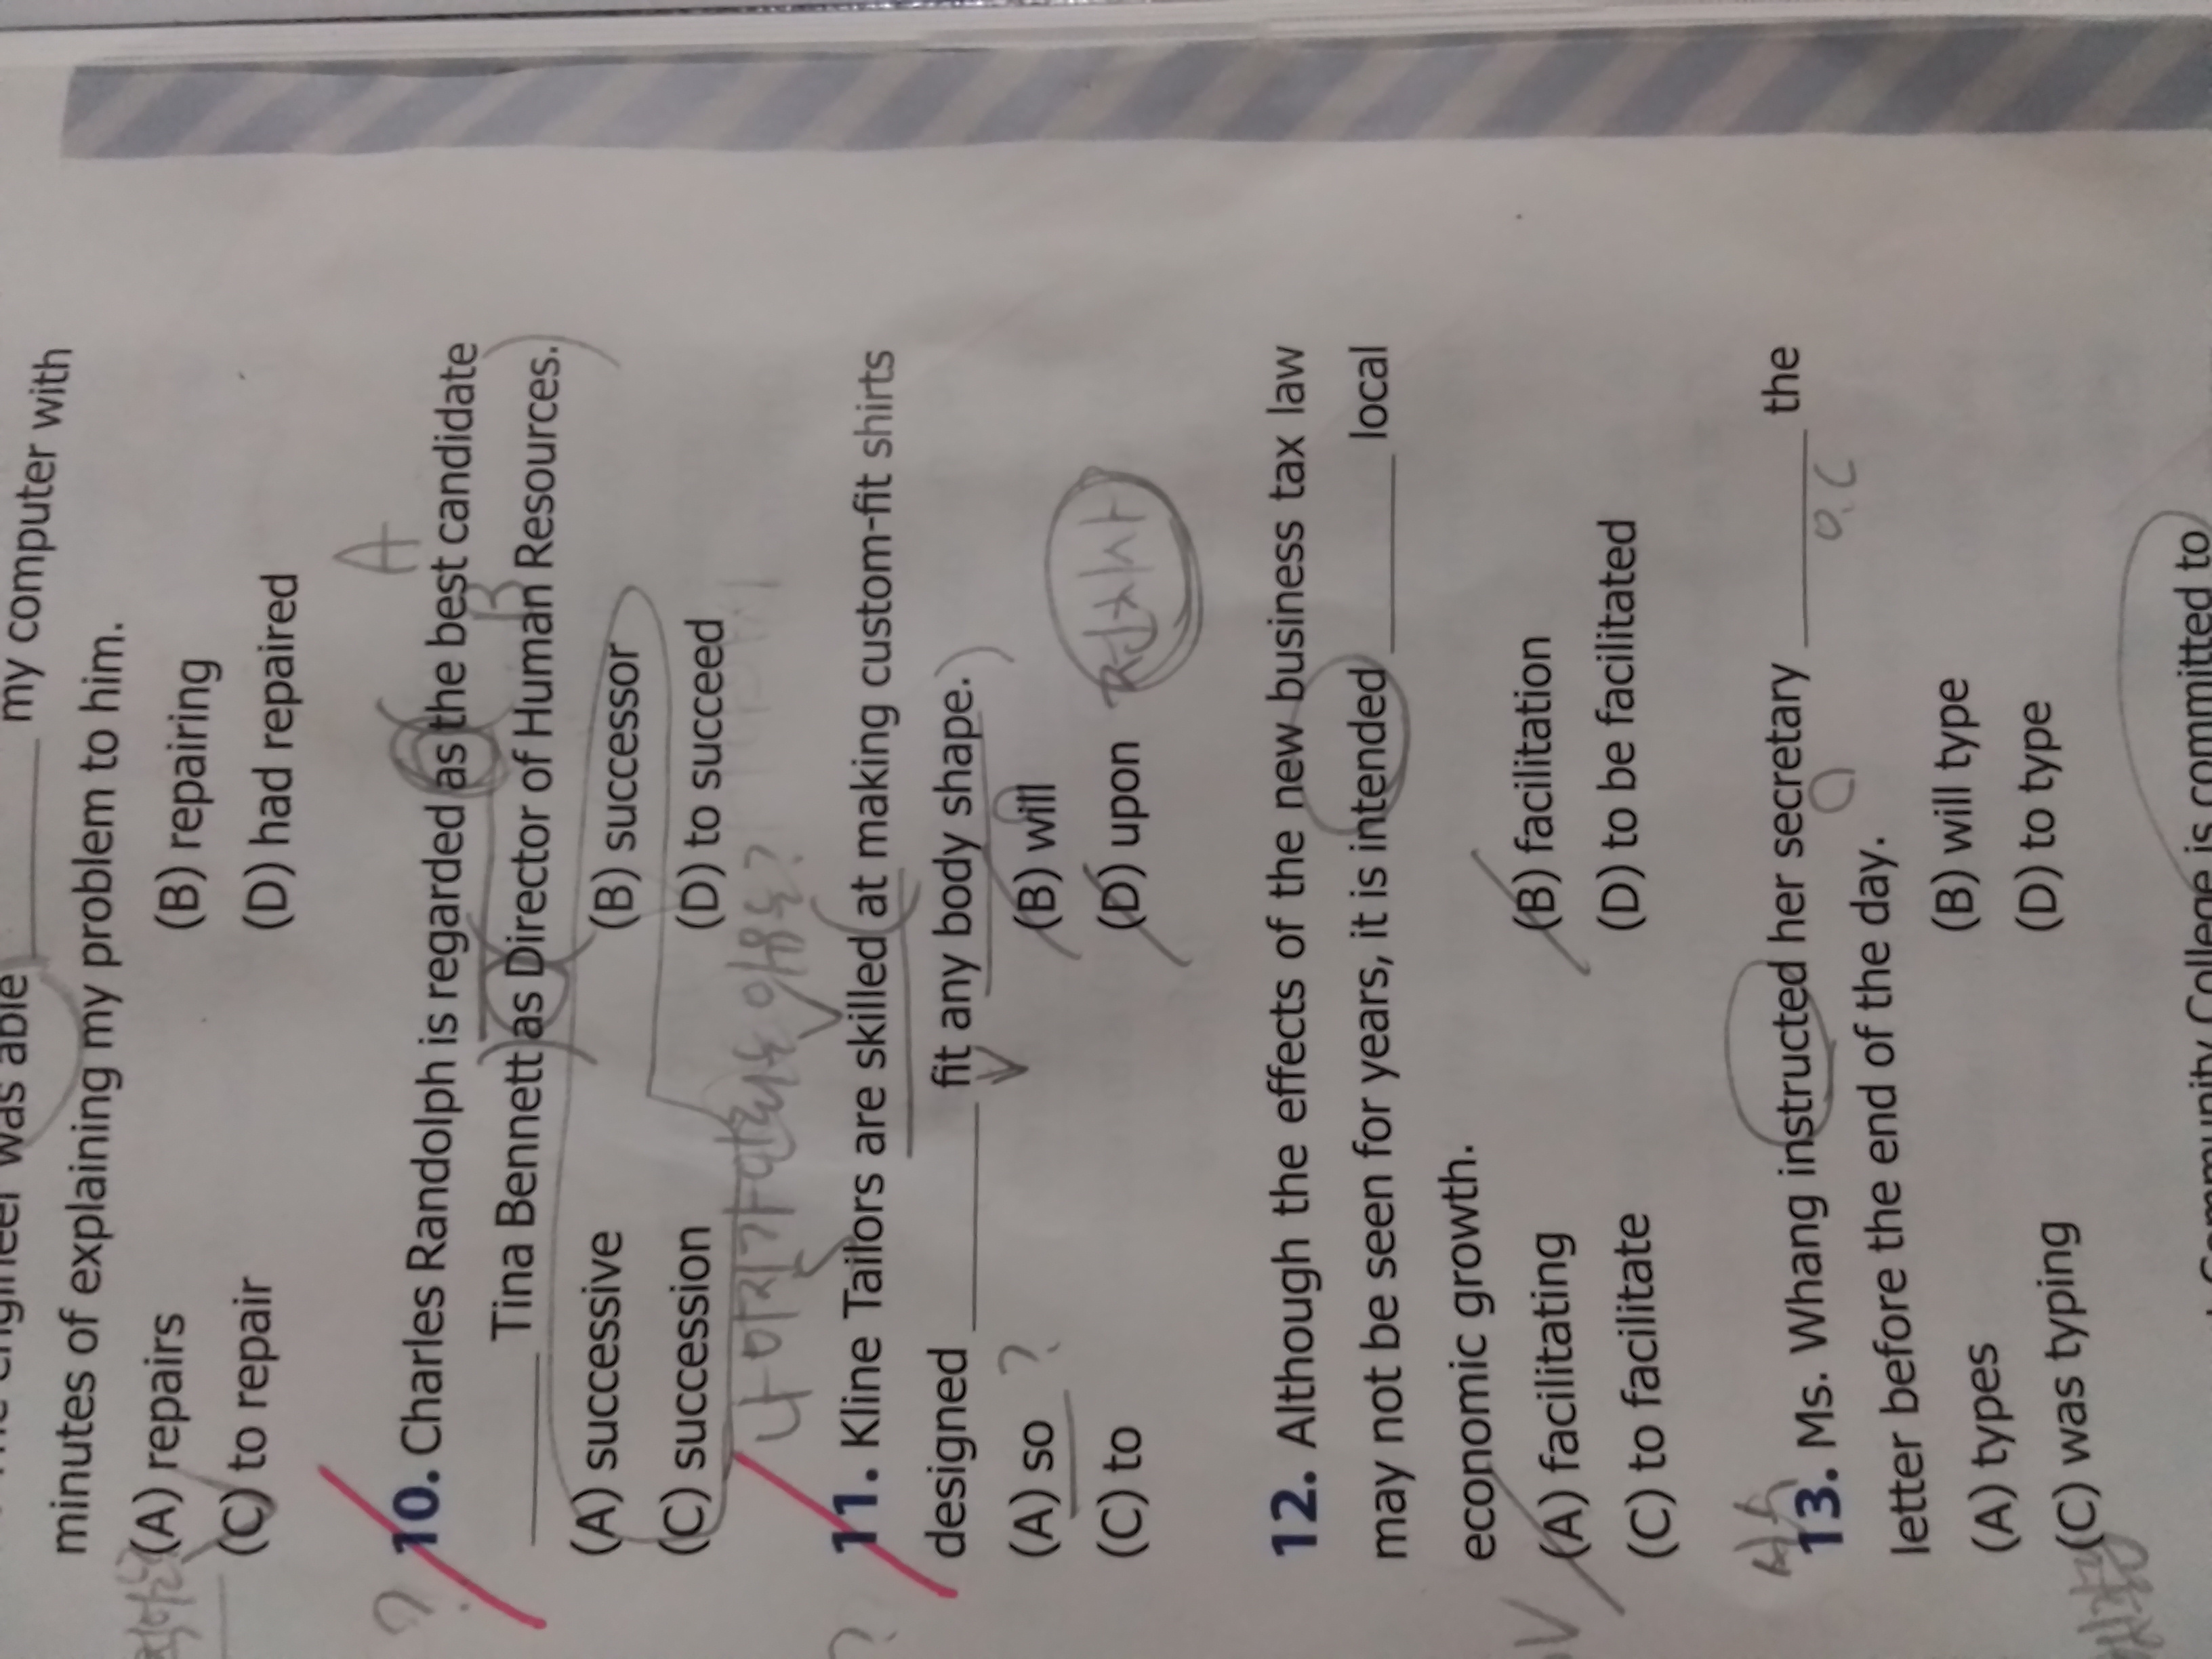 my computer with
minutes of explaining my problem to him.
(A) repairs (B) repairing
(C) to repair (D) had repaired
?
A
10. Charles Randolph is regarded as the best candidate
B
Tina Bennett as Director of Human Resources.
(A) successive (B) successor
(C) succession (D) to succeed
?
11. Kline Tailors are skilled at making custom-fit shirts
designed fit any body shape.
(A) so ? (B) will
(C) to (D) upon
12. Although the effects of the new business tax law
may not be seen for years, it is intended local
economic growth.
(A) facilitating (B) facilitation
(C) to facilitate (D) to be facilitated
13. Ms. Whang instructed her secretary the
O o.c
letter before the end of the day.
(A) types (B) will type
(C) was typing (D) to type
Community College is committed to